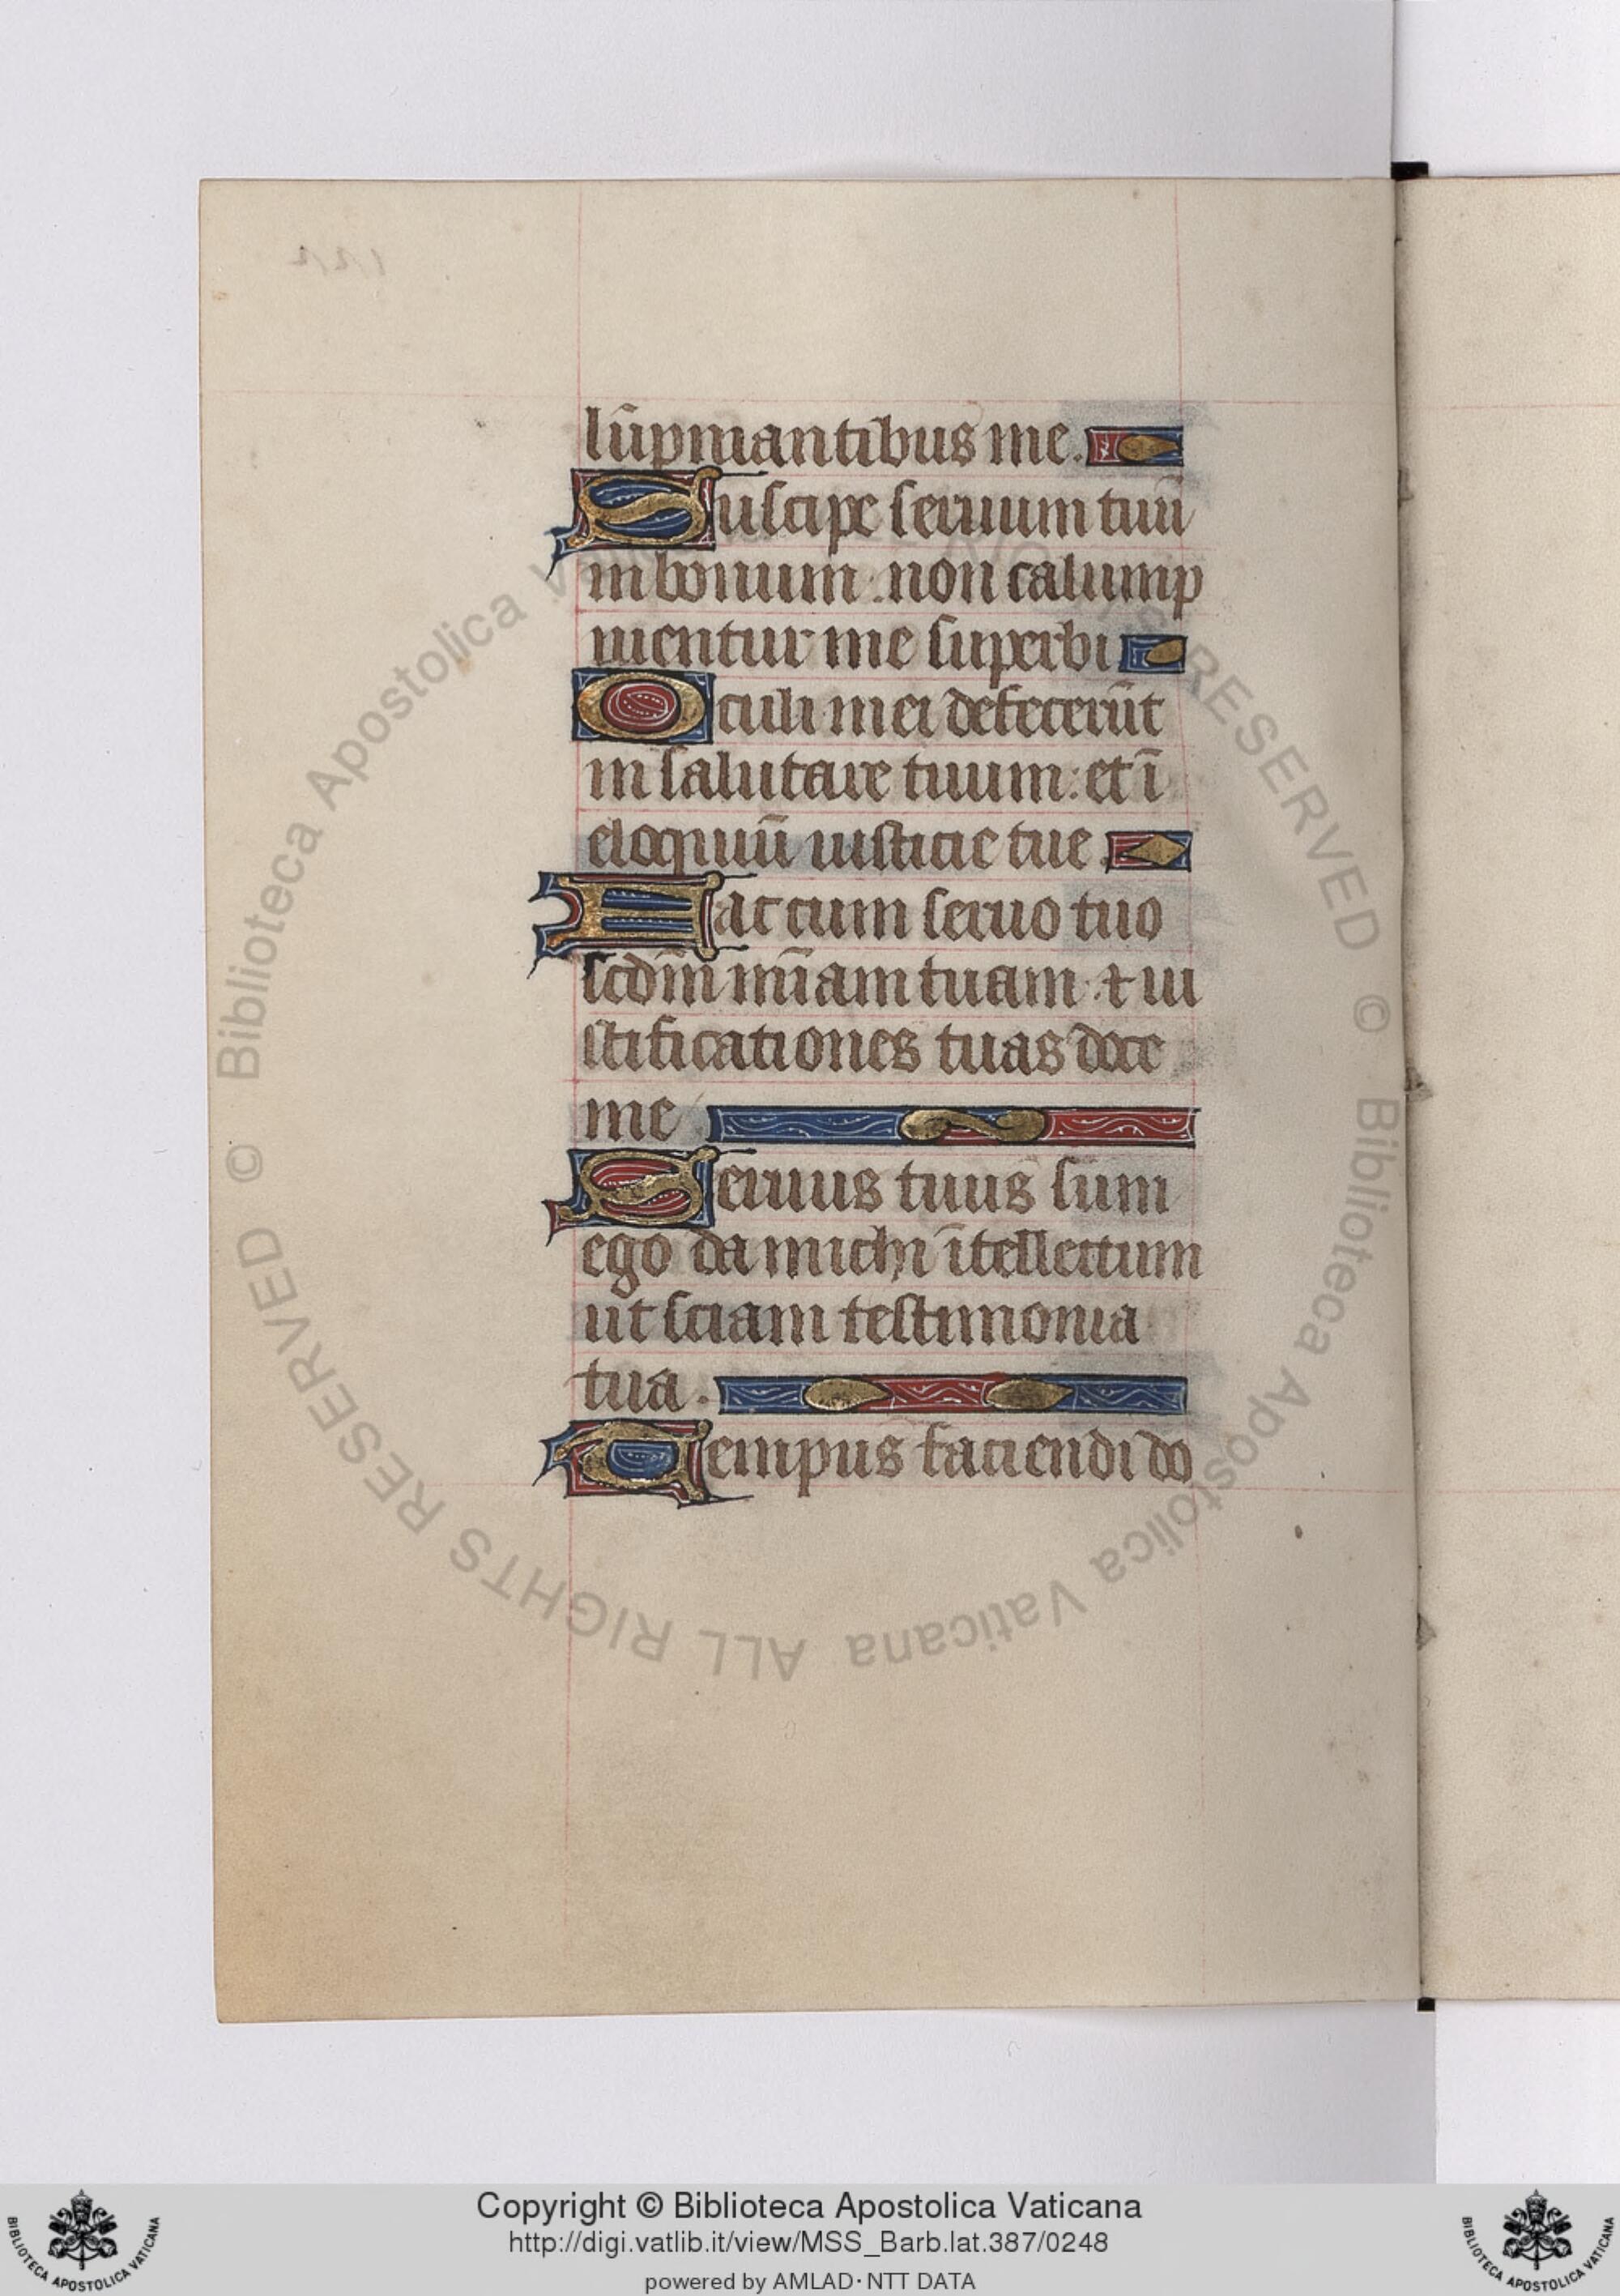 lūpniantibus me.
Suscipe seruum tuū
in bonum: non calump
nientur me superbi
Oculi mei defecerūt
in salutare tuum: et ī
eloquiū iusticie tue.
Fac cum seruo tuo
scdm̄ mīam tuam: ⁊ iu
stificationes tuas doce
me
Seruus tuus sum
ego da michi ītellectum
ut sciam testimonia
tua.
Tempus faciendi do
© Biblioteca Apostolica Vaticana ALL RIGHTS RESERVED
Copyright © Biblioteca Apostolica Vaticana
http://digi.vatlib.it/view/MSS_Barb.lat.387/0248
powered by AMLAD·NTT DATA
BIBLIOTECA APOSTOLICA VATICANA
BIBLIOTECA APOSTOLICA VATICANA